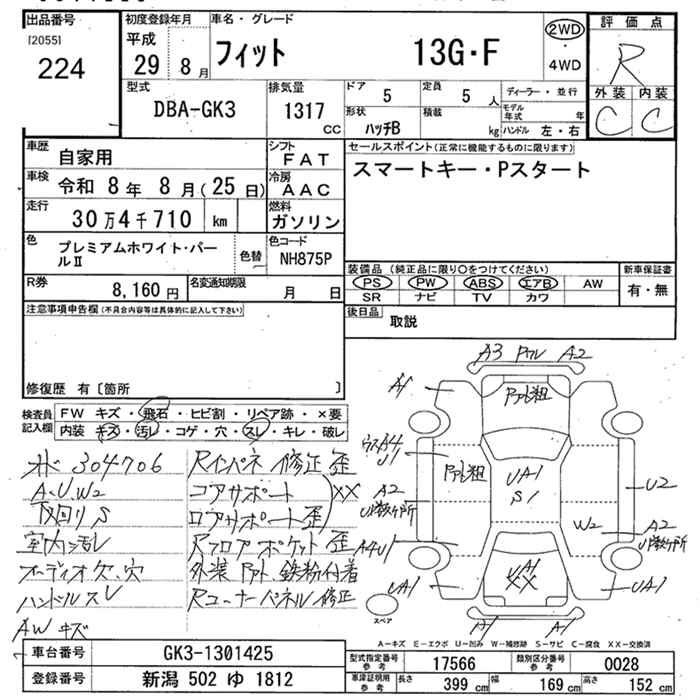 出品番号 初度登録年月 車名・グレード 評価点
[2055]
224
平成 29 8月 フィット 13G・F 2WD・4WD R
外装 内装
C C
型式 DBA-GK3 排気量 1317 CC
ドア 5 定員 5人 ディーラー・並行
形状 ハッチB 積載 kg モデル年式 年
ハンドル 左・右
車歴 自家用 シフト FAT
セールスポイント(正常に機能するものに限ります)
スマートキー・Pスタート
車検 令和 8年 8月(25日) 冷房 AAC
走行 30万4千710 km 燃料 ガソリン
色 プレミアムホワイト・パールⅡ 色替 色コード NH875P
R券 8,160円 名変通知期限 月 日
装備品(純正品に限り〇をつけてください) 新車保証書
PS PW ABS エアB AW 有・無
SR ナビ TV カワ
後日品 取説
注意事項申告欄(不具合内容等は具体的に記入して下さい)
修復歴 有〔箇所 〕
検査員記入欄
FW キズ・飛石・ヒビ割・リペア跡・×要
内装 キズ・汚レ・コゲ・穴・スレ・キレ・破レ
304706
A.U.W2
下回りS
室内汚レ
オーディオ欠.穴
ハンドルスレ
AWキズ
Rインパネ 修正 歪
コアサポート
ロアサポート歪
XX
Rフロアポケット 歪
外装 鉄粉付着
Rコーナーパネル修正
A3 A2
A1
A4
U1
A2
UA1
S1
U2
W2
A2
A4U1
UA1
UA1
XX
UA1
A1 A1
スペア
A-キズ E-エクボ U-凹み W-補修跡 S-サビ C-腐食 XX-交換済
車台番号 GK3-1301425
登録番号 新潟 502 ゆ 1812
型式指定番号 参考 17566 類別区分番号 参考 0028
車庫証明用 参考 長さ 399 cm 幅 169 cm 高さ 152 cm